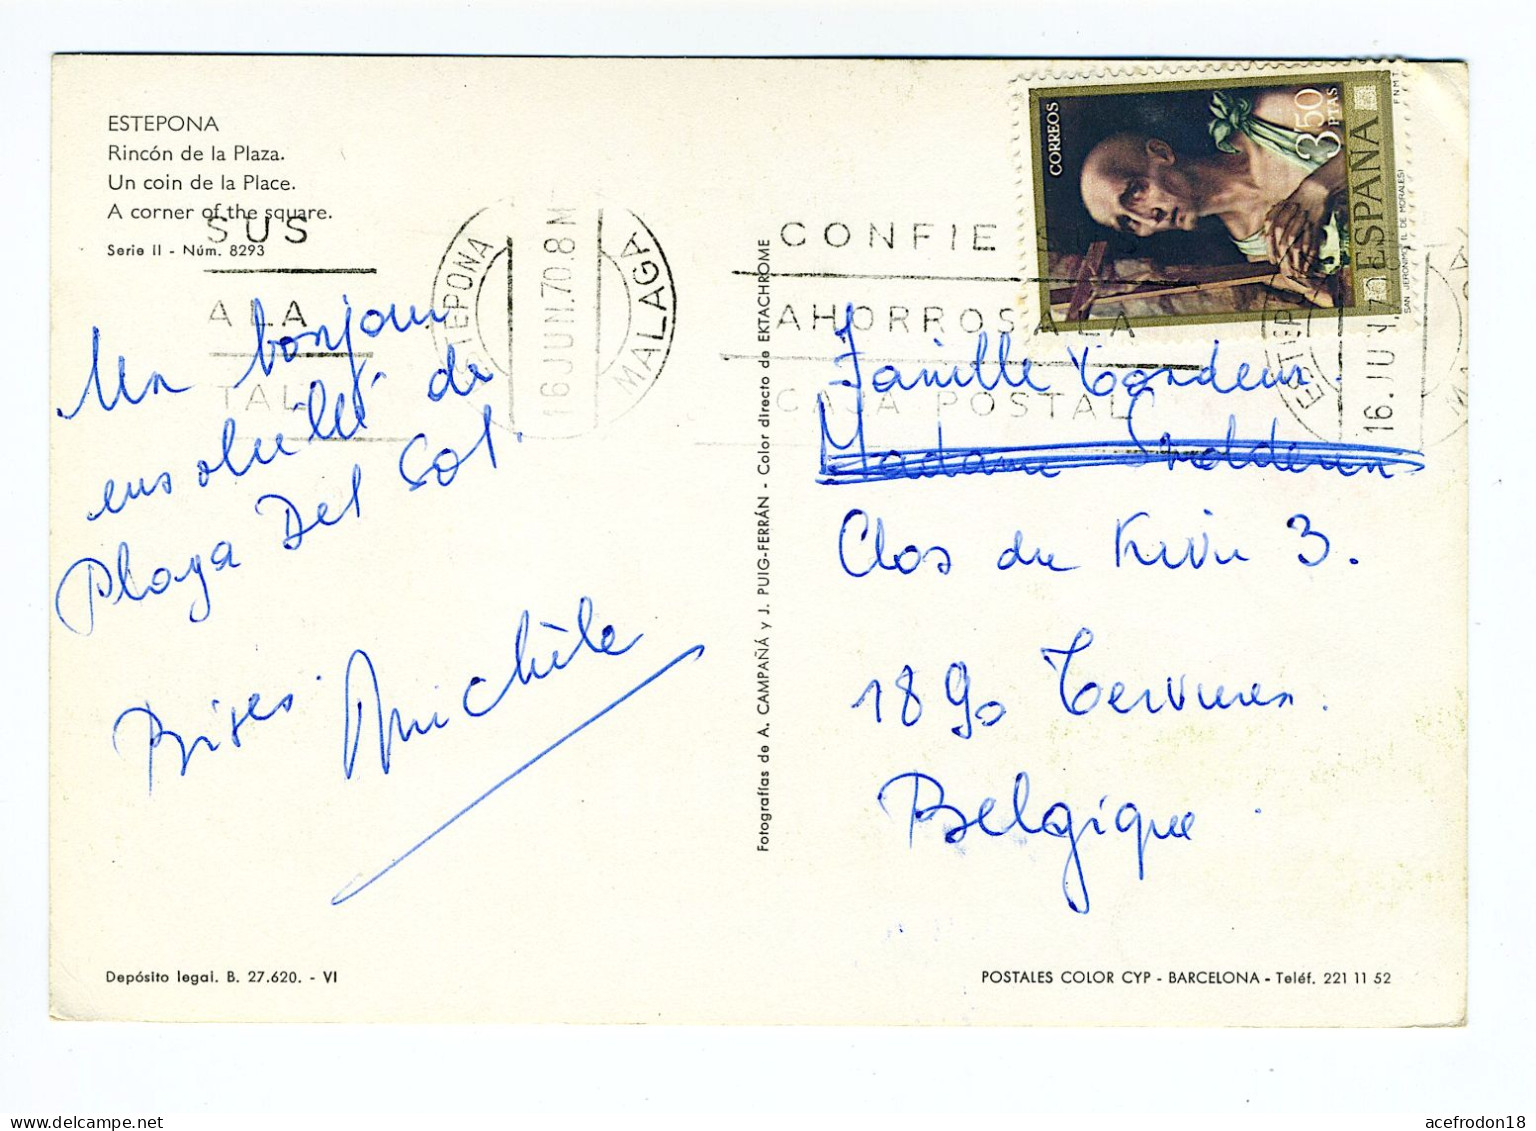 ESTEPONA
Rincón de la Plaza.
Un coin de la Place.
A corner of the square.
Serie II - Núm. 8293
SUS
A LA
TAL
ESTEPONA
16 JUN.70.8M
MALAGA
CONFIE S
AHORROS A LA
CAJA POSTAL
CORREOS
3'50 PTAS
ESPAÑA
F.N.M.T.
SAN JERONIMO (L. DE MORALES)
16.JUN.70
Un bonjour
ensoleillé de
Playa Del Sol.
Bises. Michèle
Fotografías de A. CAMPAÑÁ y J. PUIG-FERRÁN - Color directo de EKTACHROME
Famille Cordeur.
Madame
Clos du Kivu 3.
1890 Tervuren.
Belgique.
Depósito legal. B. 27.620. - VI
POSTALES COLOR CYP - BARCELONA - Teléf. 221 11 52
acefrodon18